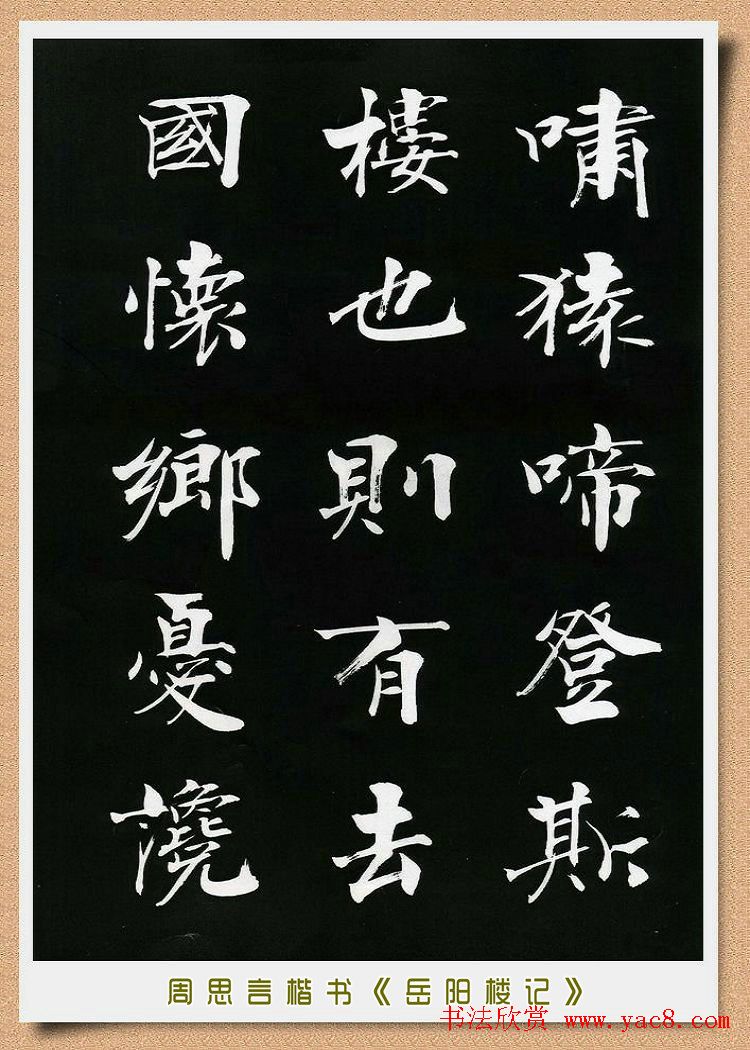 嘯猿啼登斯
樓也則有去
國懷鄉憂讒
周思言楷书《岳阳楼记》
书法欣赏 www.yac8.com